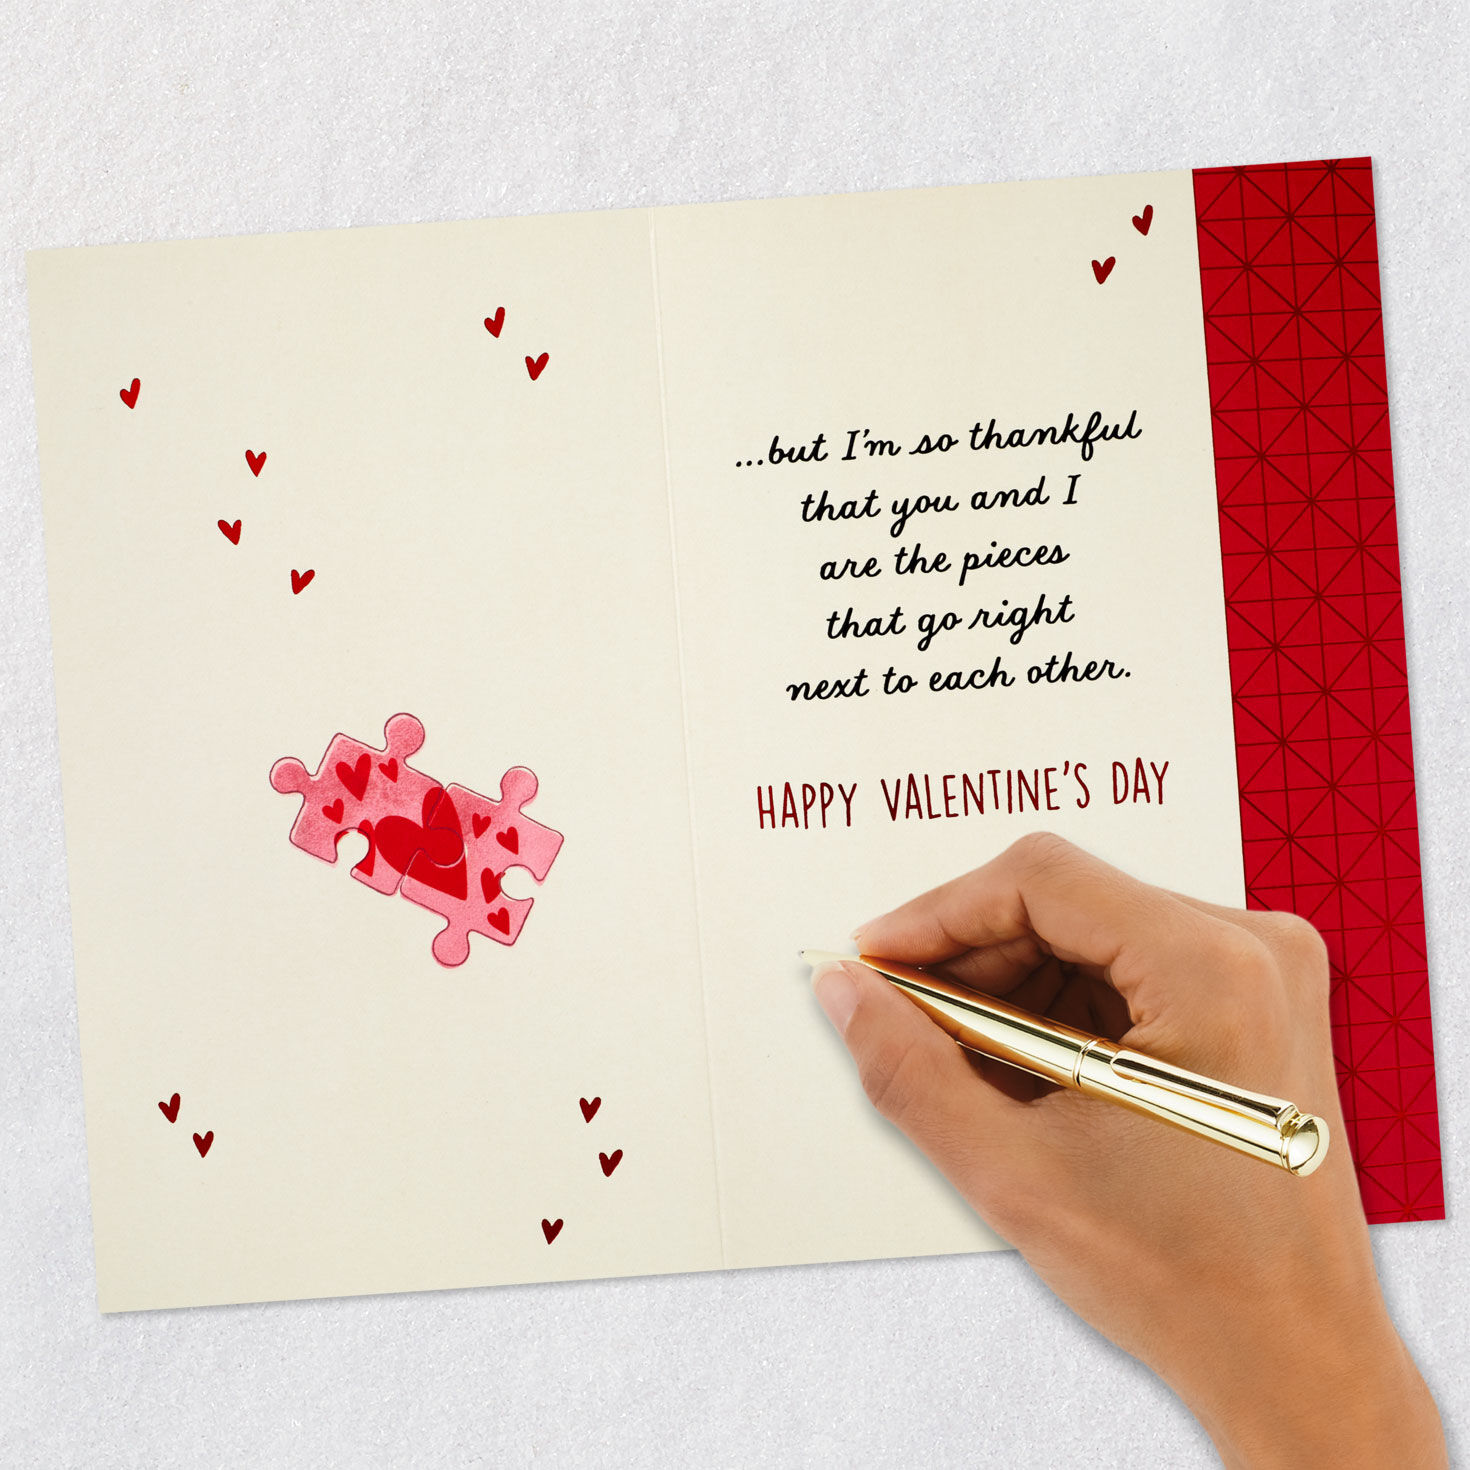 ...but I'm so thankful
that you and I
are the pieces
that go right
next to each other.
HAPPY VALENTINE'S DAY